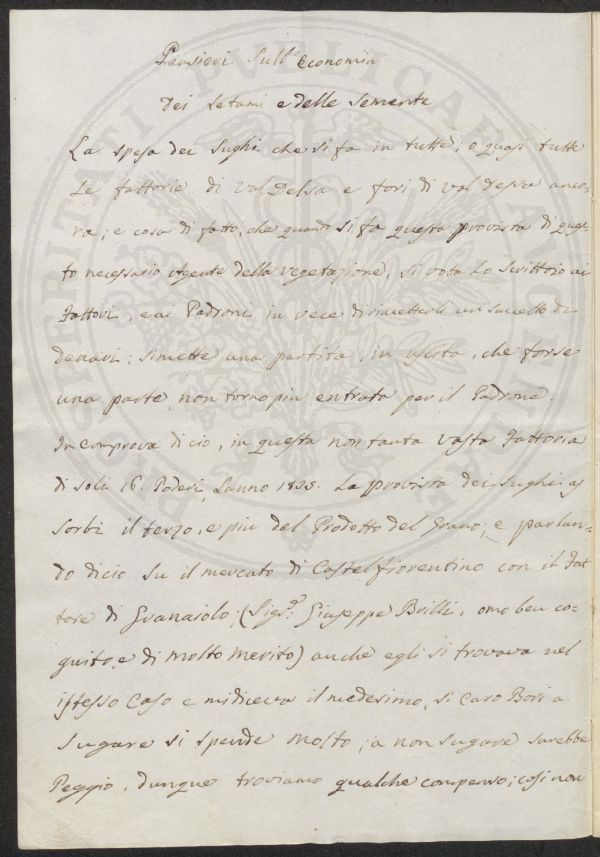 Pensieri Sull'Economia
Dei Letami e delle Semente
La spesa dei Sughi che si fa in tutte, o quasi tutte
Le fattorie di Val Delsa e fori di Val Delsa anco-
ra; e cosa di fatto, che quando si fa questa provvista di ques-
to necessario Agente della vegetazione, si vota Lo Scrittoio ai
Fattori, e ai Padroni in vece di rimetterli un sacchetto di
Denari; si mette una partita, in uscita, che forse
una parte, non torno piu entrata per il Padrone.
In comprova di cio, in questa non tanta vasta Fattoria
di soli 16. Poderi, L'anno 1825. La provvista dei Sughi as
sorbi il terzo, e piu del Prodotto del Grano; e parlan-
do dicio su il mercato di Castelfiorentino con il Fat
tore di Granaiolo, (Sigre. Giuseppe Brilli, omo ben co-
gnito, e di molto merito) anche egli si trovava nel
istesso Caso e midiceva il medesimo, si Caro Bori a
Sugare si spende molto, a non sugare sarebbe
Peggio, dunque troviamo qualche compenso; cosi non
PROSPERITATI PVBLICAE AVGENDAE